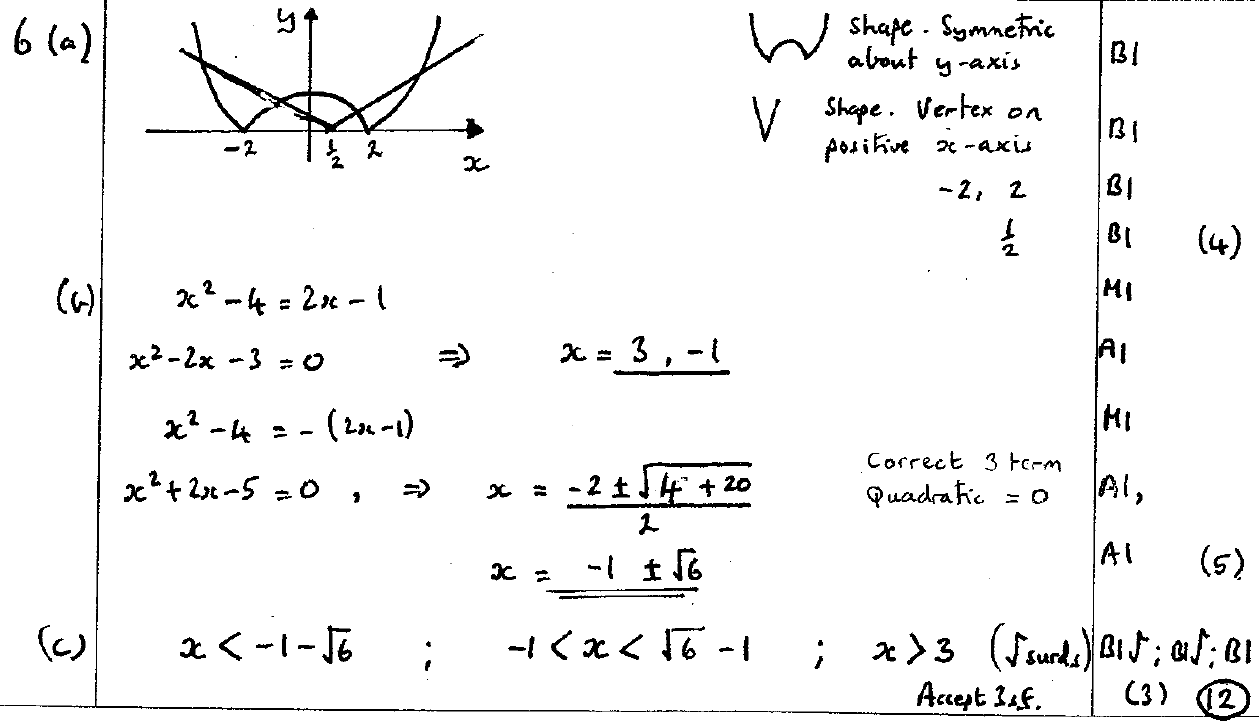 6 (a) y Shape. Symmetric
about y-axis B1
V Shape. Vertex on
positive x-axis B1
-2 1/2 2 x
-2, 2 B1
1/2 B1 (4)
(b) x² - 4 = 2x - 1 M1
x² - 2x - 3 = 0 ⇒ x = 3, -1 A1
x² - 4 = -(2x - 1) M1
x² + 2x - 5 = 0, ⇒ x = (-2 ± √(4 + 20))/2 Correct 3 term
Quadratic = 0 A1,
x = -1 ± √6 A1 (5)
(c) x < -1 - √6 ; -1 < x < √6 - 1 ; x > 3 (√ surds) B1√; B1√; B1
Accept 3 s.f. (3) 12